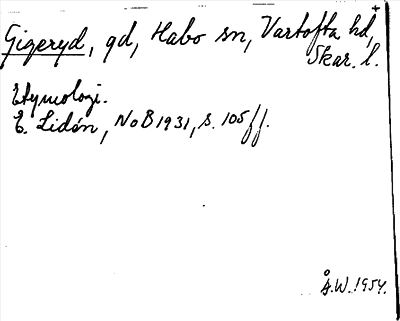 Gigeryd, gd, Habo sn, Vartofta hd,
Skar. l.
Etymologi.
E. Lidén, NoB 1931, s. 105 ff.
Å.W. 1954.